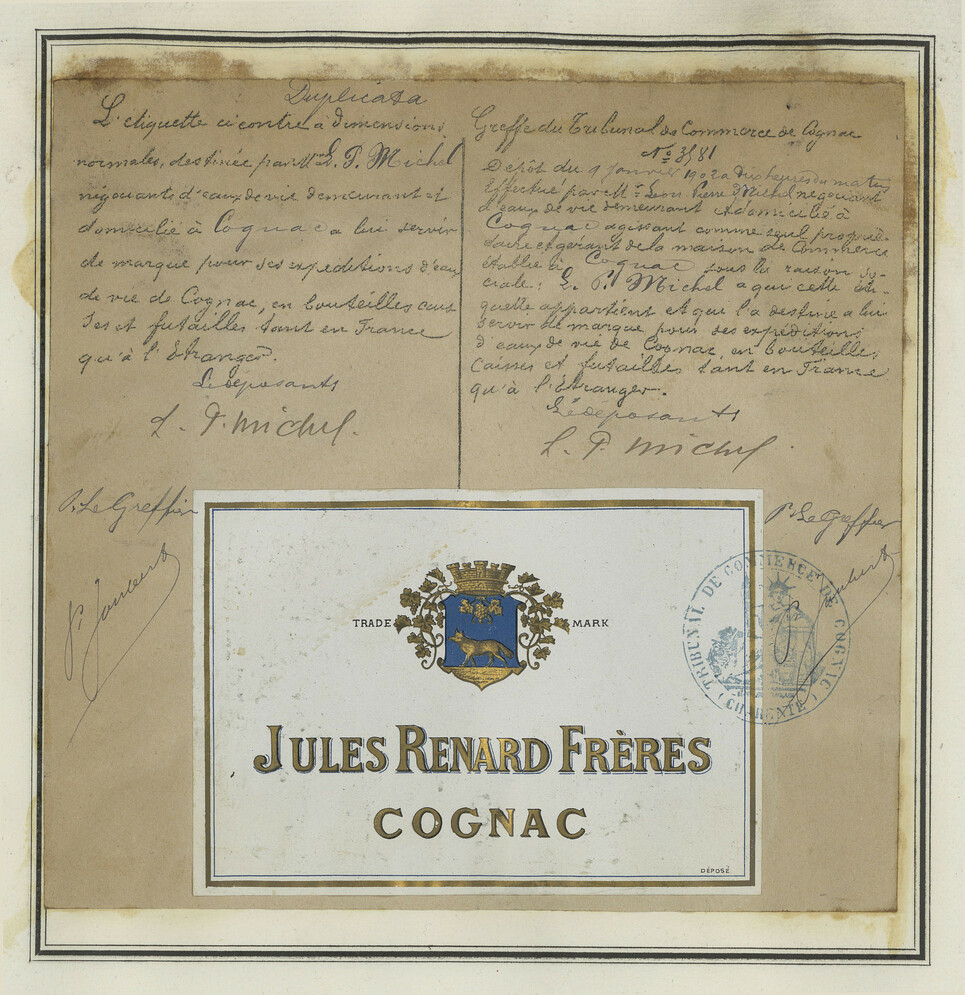 Duplicata
L'etiquette ci contre à dimensions
normales, destinée par Mr L. P. Michel
négociants d'eaux de vie demeurant et
domicilié à Cognac a lui servir
de marque pour ses expéditions d'eau
de vie de Cognac, en bouteilles cais
ses et futailles tant en France
qu'à l'Etranger.
Le déposants
L. P. Michel.
P. Le Greffier
P. Joubert
Greffe du Tribunal de Commerce de Cognac
No 3581
Dépôt du 9 Janvier 1902 a dix heures du matin
Effectué par Mr Leon Pierre Michel négociant
d'eaux de vie demeurant et domicilié à
Cognac agissant comme seul proprié-
taire et gérant de la maison de Commerce
établie à Cognac sous la raison so-
ciale: L. P. Michel a qui cette éti-
quette appartient et que l'a destiné a lui
servir de marque pour ses expéditions
d'eaux de vie de Cognac, en bouteilles
Caisses et futailles tant en France
qu'à l'étranger.
Le déposants
L. P. Michel.
P. Le Greffier
Joubert
TRIBUNAL DE COMMERCE DE COGNAC
(CHARENTE)
TRADE MARK
JULES RENARD FRÈRES
COGNAC
DÉPOSÉ